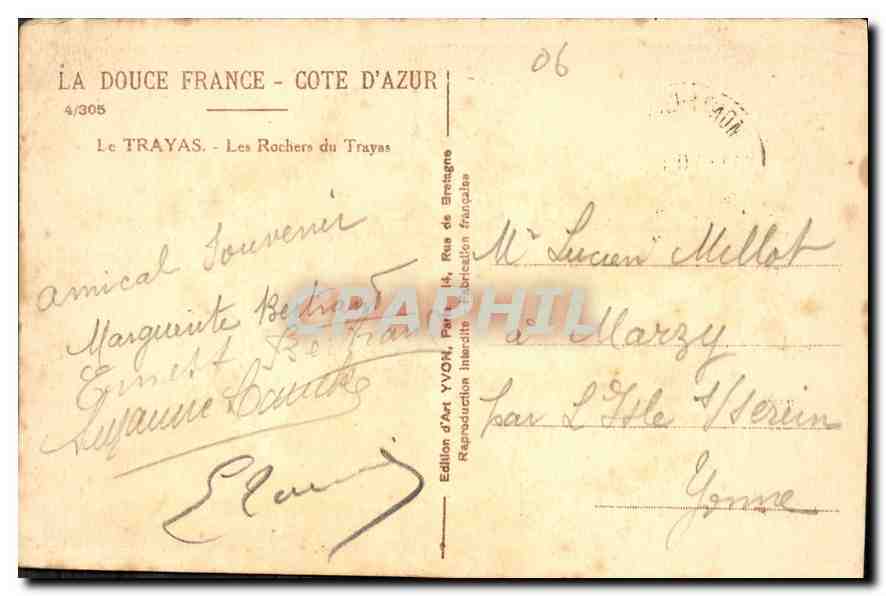 LA DOUCE FRANCE - COTE D'AZUR
4/305
Le TRAYAS. - Les Rochers du Trayas
06
Amical Souvenir
Marguerite Bertrand
Ernest Bertrand
Suzanne
Edition d'Art YVON, Paris 14, Rue de Bretagne
Reproduction Interdite Fabrication française
CPAPHIL
Mr Lucien Millot
à Marzy
par L'Isle s/Serein
Yonne